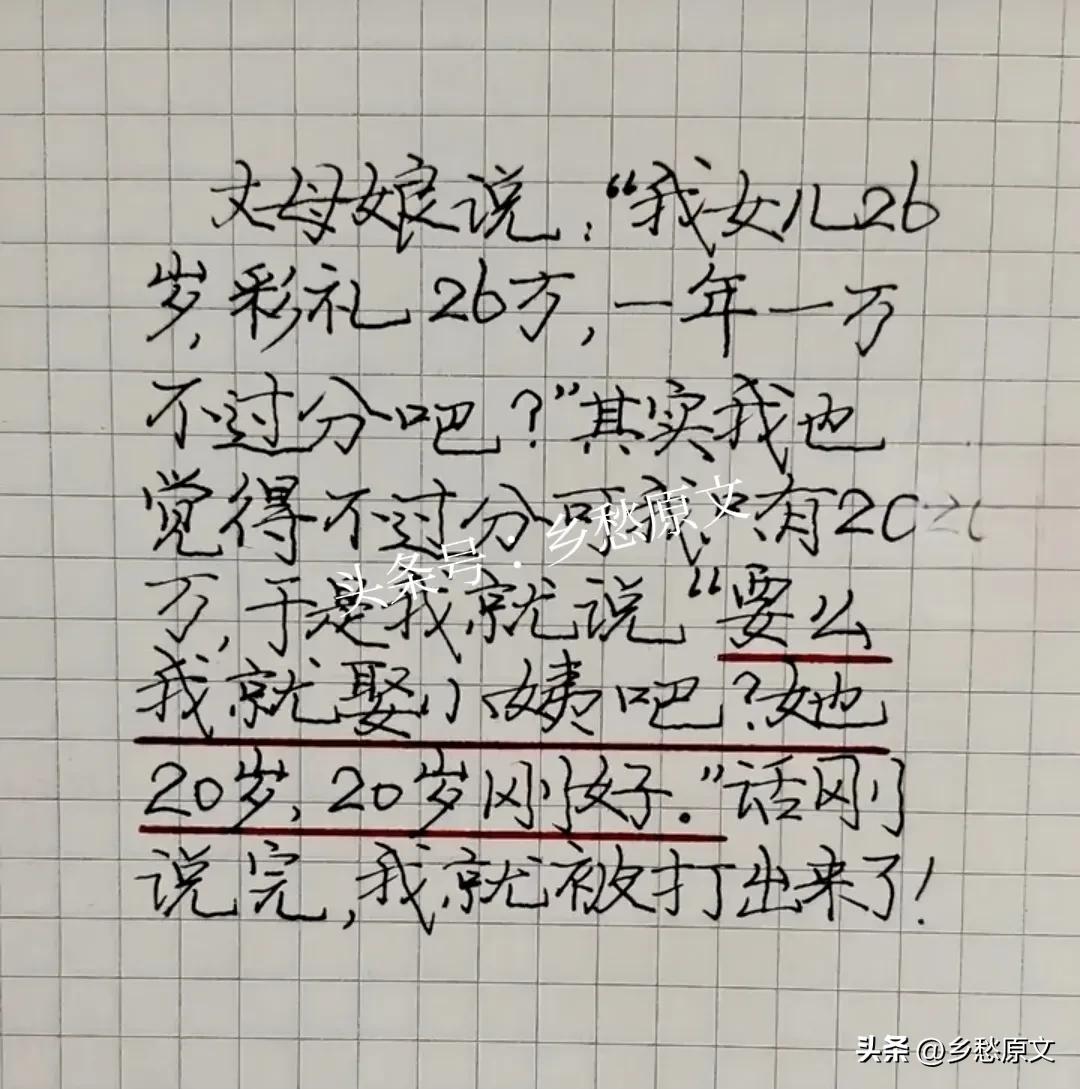 丈母娘说:“我女儿26
岁,彩礼26万,一年一万
不过分吧?”其实我也
觉得不过分可我只有20
万,于是我就说“要么
我就娶小姨吧?她
20岁,20岁刚好.”话刚
说完,我就被打出来了!
头条号:乡愁原文
头条 @乡愁原文